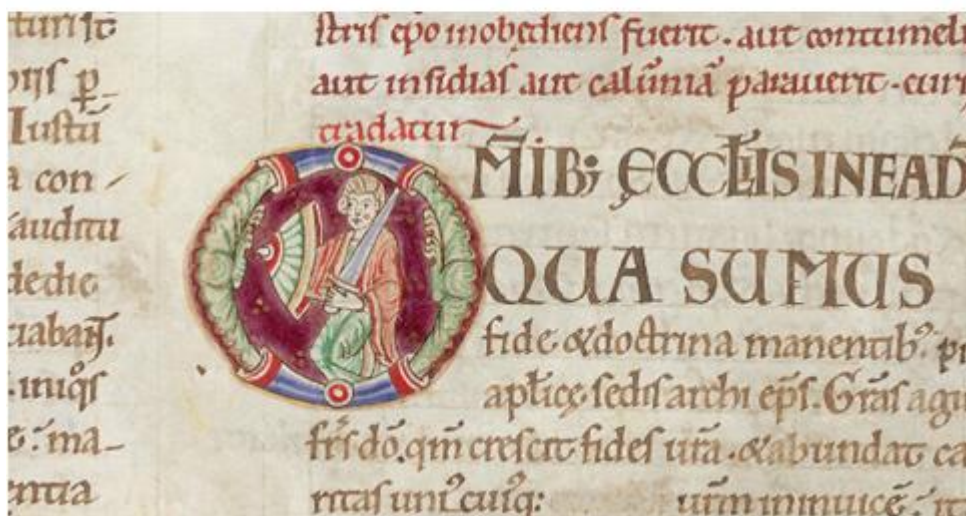 a con
auditu
dedic
entia
stris epo inobediens fuerit. aut contumeli
aut insidias aut calūniā parauerit. curi
tradatur
OM̄IB; ECCL̄IIS IN EAD
QUA SUMUS
fide & doctrina manentib᾽ pi
apl̄icę sedis archi ep̄s. Gr̄as agu
fr̄s dō. qm̄ crescit fides ur̄a. & abundat ca
ritas uni᾽cuiq: ur̄m inuicē